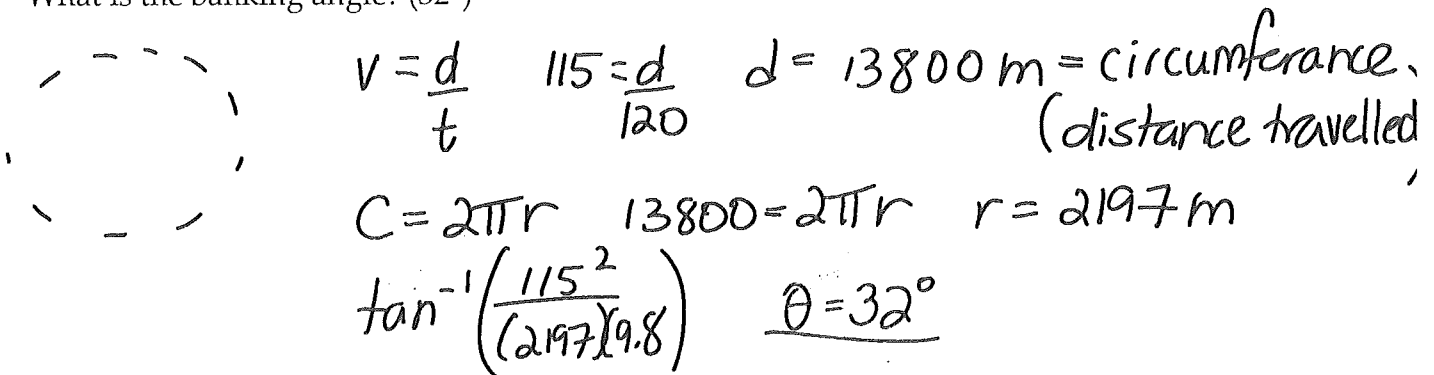 What is the banking angle? (32°)
v = d/t 115 = d/120 d = 13800 m = circumferance.
(distance travelled
C = 2πr 13800 = 2πr r = 2197 m
tan⁻¹(115²/(2197)(9.8) θ = 32°